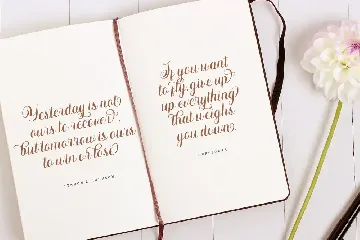 Yesterday is not
ours to recover,
but tomorrow is ours
to win or lose
If you want
to fly, give up
up everything
that weighs
you down.